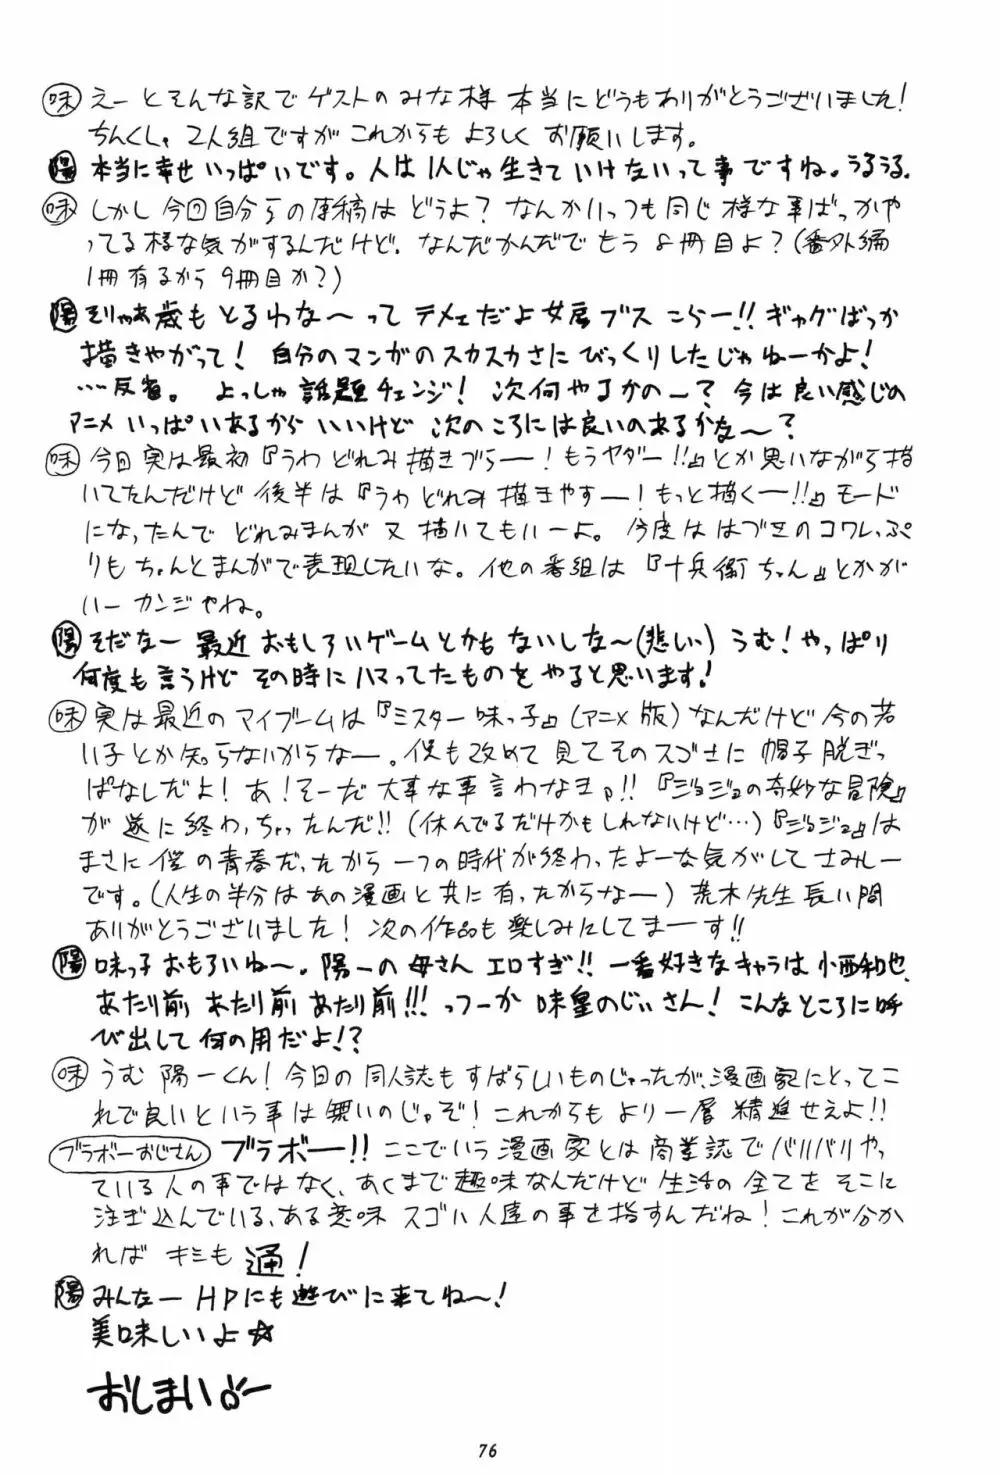 味 えーとそんな訳でゲストのみな様 本当にどうもありがとうございました!
ちんくしゃ2人組ですがこれからもよろしくお願いします。
陽 本当に幸せいっぱいです。人は1人じゃ生きていけないって事ですね。うるうる。
味 しかし今回自分らの原稿はどうよ?なんかいっつも同じ様な事ばっかや
ってる様な気がするんだけど。なんだかんだでもう8冊目よ?(番外編
1冊有るから9冊目か?)
陽 そりゃあ歳もとるわな〜ってテメェだよ女房ブスこらー!!ギャグばっか
描きやがって!自分のマンガのスカスカさにびっくりしたじゃねーかよ!
……反省。よっしゃ話題チェンジ!次何やるかの〜?今は良い感じの
アニメいっぱいあるからいいけど次のころには良いのあるかな〜?
味 今日実は最初『うわどれみ描きづらー!もうヤダー!!』とか思いながら描
いてたんだけど後半は『うわどれみ描きやすー!もっと描くー!!』モード
になったんでどれみまんが又描いてもいーよ。今度ははづきのコワレっぷ
りもちゃんとまんがで表現したいな。他の番組は『十兵衛ちゃん』とかが
いーカンジやね。
陽 そだなー最近おもしろいゲームとかもないしな〜(悲しい)うむ!やっぱり
何度も言うけどその時にハマってたものをやると思います!
味 実は最近のマイブームは『ミスター味っ子』(アニメ版)なんだけど今の若
い子とか知らないからなー。俺も改めて見てそのスゴさに帽子脱ぎっ
ぱなしだよ!あ!そーだ大事な事言わなきゃ!!『ジョジョの奇妙な冒険』
が遂に終わっちゃったんだ!!(休んでるだけかもしれないけど…)『ジョジョ』は
まさに僕の青春だったから一つの時代が終わったよーな気がしてさみしー
です。(人生の半分はあの漫画と共に有ったからなー)荒木先生長い間
ありがとうございました!次の作品も楽しみにしてまーす!!
陽 味っ子おもろいね〜。陽一の母さんエロすぎ!!一番好きなキャラは小西和也。
あたり前あたり前あたり前!!!っつーか味皇のじいさん!こんなところに呼
び出して何の用だよ!?
味 うむ陽一くん!今日の同人誌もすばらしいものじゃったが、漫画家にとってこ
れで良いという事は無いのじゃぞ!これからもより一層精進せえよ!!
ブラボーおじさん ブラボー!!ここでいう漫画家とは商業誌でバリバリやっ
ている人の事ではなく、あくまで趣味なんだけど生活の全てをそこに
注ぎ込んでいる、ある意味スゴい人達の事を指すんだね!これが分か
ればキミも通!
陽 みんなーHPにも遊びに来てね〜!
美味しいよ☆
おしまい
76